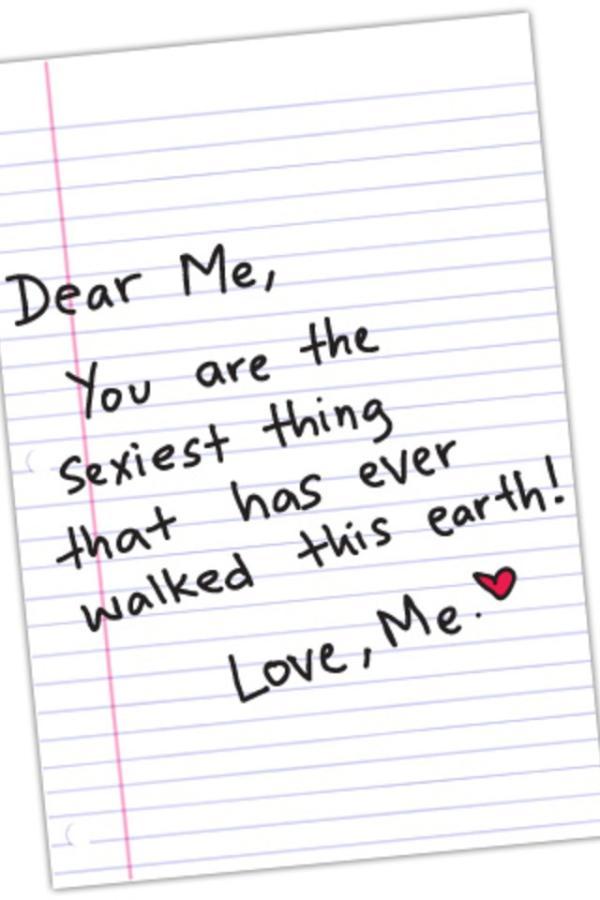 Dear Me,
You are the
sexiest thing
that has ever
walked this earth!
Love, Me.